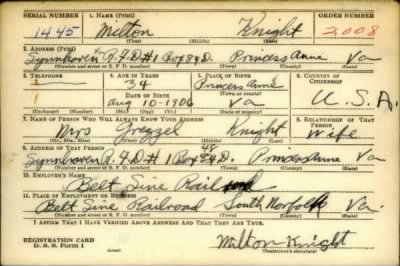 SERIAL NUMBER 1. NAME (Print) ORDER NUMBER
1445 Milton Knight 2008
(First) (Middle) (Last)
2. ADDRESS (Print)
Lynnhaven R.F.D #1 Box 84D. Princess Anne Va
(Number and street or R. F. D. number) (Town) (County) (State)
3. TELEPHONE 4. AGE IN YEARS 5. PLACE OF BIRTH 6. COUNTRY OF CITIZENSHIP
34 Princess Anne
DATE OF BIRTH (Town or county)
Aug 10-1906 Va U.S.A.
(Exchange) (Number) (Mo.) (Day) (Yr.) (State or country)
7. NAME OF PERSON WHO WILL ALWAYS KNOW YOUR ADDRESS 8. RELATIONSHIP OF THAT PERSON
Mrs Knight Wife
(Mr., Mrs., Miss) (First) (Middle) (Last)
9. ADDRESS OF THAT PERSON
Lynnhaven R.F.D # 1 Box 84D. Princess Anne Va
(Number and street or R. F. D. number) (Town) (County) (State)
10. EMPLOYER'S NAME
Belt Line Railroad
11. PLACE OF EMPLOYMENT OR BUSINESS
Belt Line Railroad South Norfolk Va.
(Number and street or R. F. D. number) (Town) (County) (State)
I AFFIRM THAT I HAVE VERIFIED ABOVE ANSWERS AND THAT THEY ARE TRUE.
REGISTRATION CARD
D. S. S. Form 1 Milton Knight
(Registrant's signature)